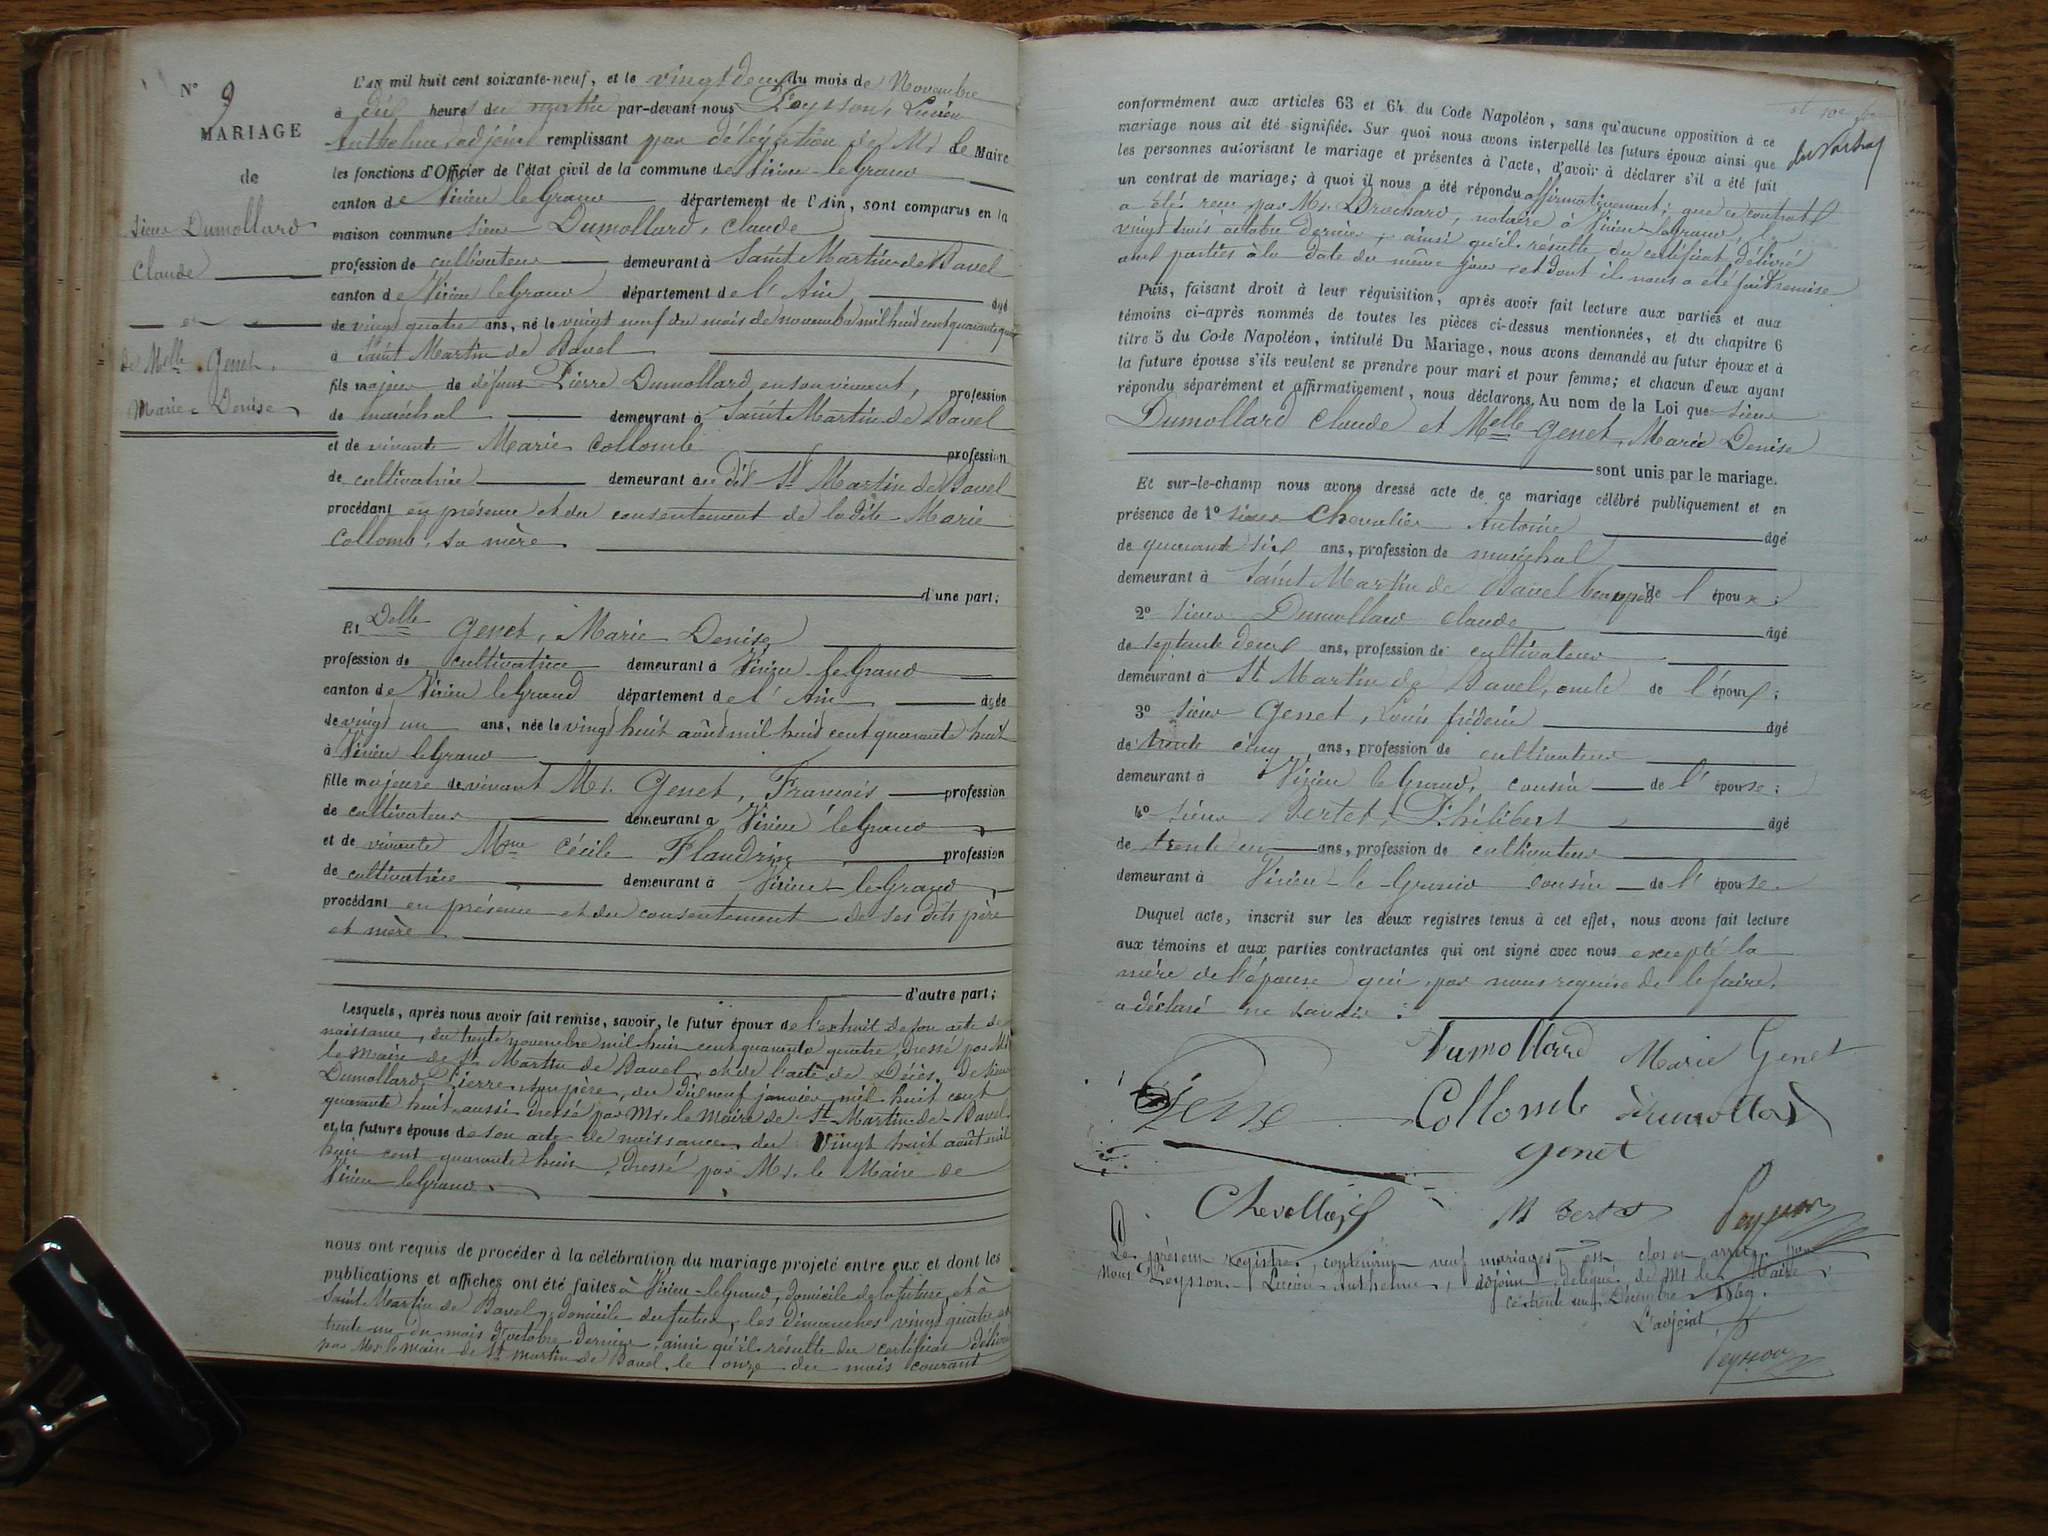 N° 9
MARIAGE
de
Sieur Dumollard
Claude
et
de Melle Genet,
Marie-Denise
L'an mil huit cent soixante-neuf, et le vingt deux du mois de Novembre
à dix heures du matin par-devant nous Peysson, Lucien
Anthelme, adjoint remplissant par délégation de Mr le Maire
les fonctions d'Officier de l'état civil de la commune de Virieu-le Grand
canton de Virieu le Grand département de l'Ain, sont comparus en la
maison commune sieur Dumollard, Claude
profession de cultivateur demeurant à Saint Martin de Bavel
canton de Virieu le Grand département de l'Ain âgé
de vingt quatre ans, né le vingt neuf du mois de novembre mil huit cent quarante quatre
à Saint Martin de Bavel
fils majeur de défunt Pierre Dumollard, en son vivant, profession
de maréchal demeurant à Saint Martin de Bavel
et de vivante Marie Collomb profession
de cultivatrice demeurant au dit St Martin de Bavel
procédant en présence et du consentement de ladite Marie
Collomb, sa mère
d'une part;
Et Delle Genet, Marie Denise
profession de cultivatrice demeurant à Virieu-le Grand
canton de Virieu le Grand département de l'Ain âgée
de vingt un ans, née le vingt huit août mil huit cent quarante huit
à Virieu le Grand
fille majeure de vivant Mr. Genet, François profession
de cultivateur demeurant à Virieu le Grand
et de vivante Mme Cécile Flandrin profession
de cultivatrice demeurant à Virieu-le-Grand
procédant en présence et du consentement de ses dits père
et mère
d'autre part;
Lesquels, après nous avoir fait remise, savoir, le futur époux de l'extrait de son acte de
naissance, du trente novembre mil huit cent quarante quatre, dressé par Mr
le Maire de St Martin de Bavel, et de l'acte de Décès de sieur
Dumollard, Pierre, son père, du dix neuf janvier mil huit cent
quarante huit, aussi dressé par Mr. le Maire de St-Martin-de-Bavel
et la future épouse de son acte de naissance du vingt huit août mil
huit cent quarante huit, dressé par Mr. le Maire de
Virieu le Grand
nous ont requis de procéder à la célébration du mariage projeté entre eux et dont les
publications et affiches ont été faites à Virieu-le Grand, domicile de la future, et à
Saint Martin de Bavel, domicile du futur, les dimanches vingt quatre et
trente un du mois d'octobre dernier, ainsi qu'il résulte du certificat délivré
par Mr le maire de St Martin de Bavel, le onze du mois courant
conformément aux articles 63 et 64 du Code Napoléon, sans qu'aucune opposition à ce
mariage nous ait été signifiée. Sur quoi nous avons interpellé les futurs époux ainsi que
les personnes autorisant le mariage et présentes à l'acte, d'avoir à déclarer s'il a été fait
un contrat de mariage; à quoi il nous a été répondu affirmativement; que ce contrat
a été reçu par Mr. Brochard, notaire à Virieu-le Grand, le
vingt trois octobre dernier, ainsi qu'il résulte du certificat délivré
aux parties à la date du même jour, et dont il nous a été fait remise
Puis, faisant droit à leur réquisition, après avoir fait lecture aux parties et aux
témoins ci-après nommés de toutes les pièces ci-dessus mentionnées, et du chapitre 6
titre 5 du Code Napoléon, intitulé Du Mariage, nous avons demandé au futur époux et à
la future épouse s'ils veulent se prendre pour mari et pour femme; et chacun d'eux ayant
répondu séparément et affirmativement, nous déclarons, Au nom de la Loi que sieur
Dumollard Claude et Melle Genet, Marie Denise
sont unis par le mariage.
Et sur-le-champ nous avons dressé acte de ce mariage célébré publiquement et en
présence de 1° sieur Chevalier Antoine âgé
de quarante six ans, profession de maréchal
demeurant à Saint Martin de Bavel beaupère de l'époux;
2° sieur Dumollard Claude âgé
de septante deux ans, profession de cultivateur
demeurant à St Martin de Bavel, oncle de l'époux;
3° sieur Genet, Louis frédéric âgé
de trente cinq ans, profession de cultivateur
demeurant à Virieu le Grand, cousin de l'épouse;
4° sieur Bertet, Philibert âgé
de trente un ans, profession de cultivateur
demeurant à Virieu-le-Grand cousin de l'épouse.
Duquel acte, inscrit sur les deux registres tenus à cet effet, nous avons fait lecture
aux témoins et aux parties contractantes qui ont signé avec nous excepté la
mère de l'épouse qui, par nous requise de le faire,
a déclaré ne savoir.
Dumollard Marie Genet
Collomb Dumollard
Genet
Peysson
Le présent registre, contenant neuf mariages, est clos et arrêté par
nous Peysson Lucien Anthelme, adjoint délégué de Mr le Maire,
ce trente un Décembre 1869.
L'adjoint
Peysson